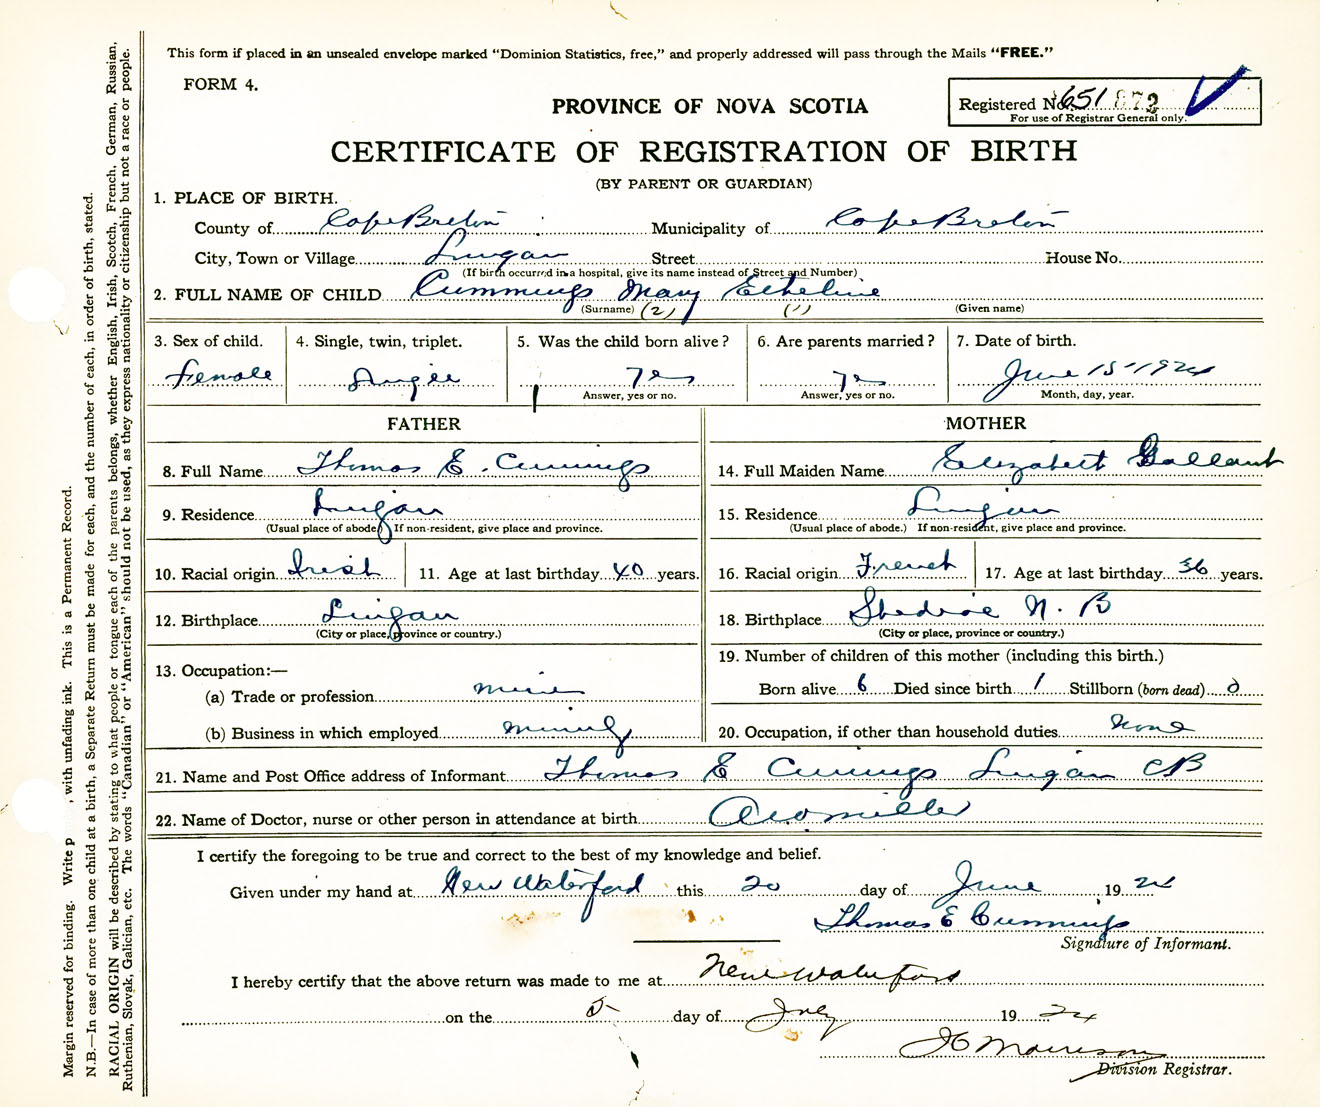 This form if placed in an unsealed envelope marked "Dominion Statistics, free," and properly addressed will pass through the Mails "FREE."
FORM 4.
Registered No. 651 872
For use of Registrar General only.
PROVINCE OF NOVA SCOTIA
CERTIFICATE OF REGISTRATION OF BIRTH
(BY PARENT OR GUARDIAN)
1. PLACE OF BIRTH.
County of Cape Breton Municipality of Cape Breton
City, Town or Village Lingan Street House No.
(If birth occurred in a hospital, give its name instead of Street and Number)
2. FULL NAME OF CHILD Cummings Mary Etheline
(Surname) (2) (1) (Given name)
3. Sex of child. 4. Single, twin, triplet. 5. Was the child born alive? 6. Are parents married? 7. Date of birth.
female Single Yes Yes June 15-1924
Answer, yes or no. Answer, yes or no. Month, day, year.
FATHER MOTHER
8. Full Name Thomas E. Cummings 14. Full Maiden Name Elizabeth Gallant
9. Residence Lingan 15. Residence Lingan
(Usual place of abode.) If non-resident, give place and province. (Usual place of abode.) If non-resident, give place and province.
10. Racial origin Irish 11. Age at last birthday 40 years. 16. Racial origin French 17. Age at last birthday 36 years.
12. Birthplace Lingan 18. Birthplace Shediac N. B
(City or place, province or country.) (City or place, province or country.)
13. Occupation:— 19. Number of children of this mother (including this birth.)
(a) Trade or profession miner Born alive 6 Died since birth 1 Stillborn (born dead) 0
(b) Business in which employed mining 20. Occupation, if other than household duties none
21. Name and Post Office address of Informant Thomas E Cummings Lingan CB
22. Name of Doctor, nurse or other person in attendance at birth
I certify the foregoing to be true and correct to the best of my knowledge and belief.
Given under my hand at New Waterford this 20 day of June 1924
Thomas E Cummings
Signature of Informant.
I hereby certify that the above return was made to me at New Waterford
on the 5 day of July 1924
Morrison
Division Registrar.
Margin reserved for binding. Write p , with unfading ink. This is a Permanent Record.
N.B.—In case of more than one child at a birth, a Separate Return must be made for each, and the number of each, in order of birth, stated.
RACIAL ORIGIN will be described by stating to what people or tongue each of the parents belongs, whether English, Irish, Scotch, French, German, Russian,
Ruthenian, Slovak, Galician, etc. The words "Canadian" or "American" should not be used, as they express nationality or citizenship but not a race or people.